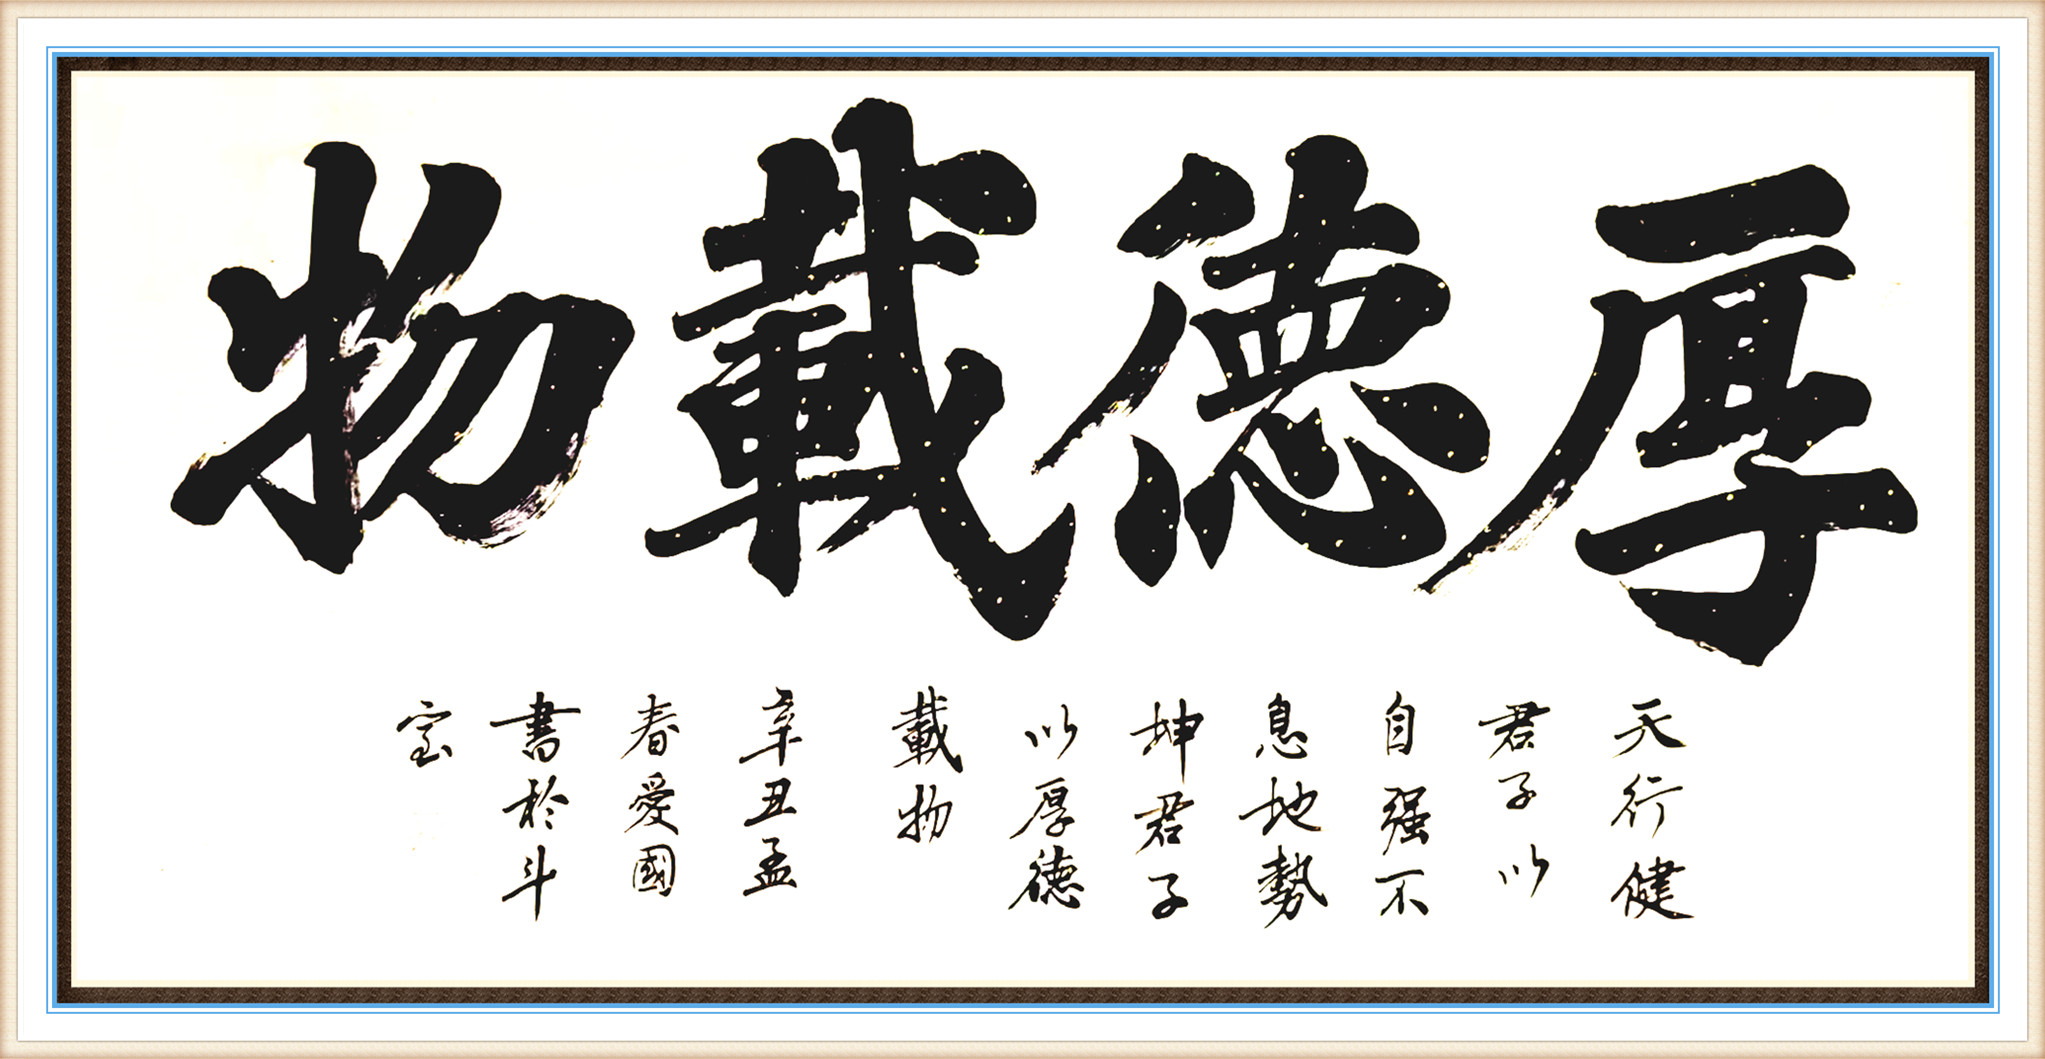 厚德載物
天行健
君子以
自强不
息地勢
坤君子
以厚德
載物
辛丑孟
春愛國
書於斗
室